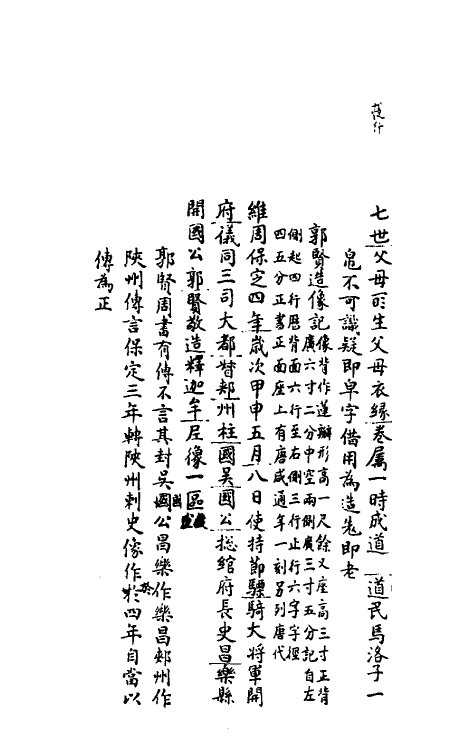 七世父母所生父母衣緣眷屬一時成道　道民馬洛子一
皀不可識疑即皁字借用為造先即老
郭賢造像記像背作蓮瓣形高一尺餘又座高三寸正背
廣六寸二分中空兩側廣三寸五分記自左
側起四行歷背面六行至右側三行止行六字字徑
四五分正書正面座上有唐咸通年一刻另列唐代
維周保定四年歲次甲申五月八日使持節驃騎大將軍開
府儀同三司大都督郟州柱國吳國公摠綰府長史昌樂縣
開國公郭賢敬造釋迦牟尼像一區
郭賢周書有傳不言其封吳國公昌樂作樂昌郟州作
陝州傳言保定三年轉陝州刺史像作於四年自當以
傳為正